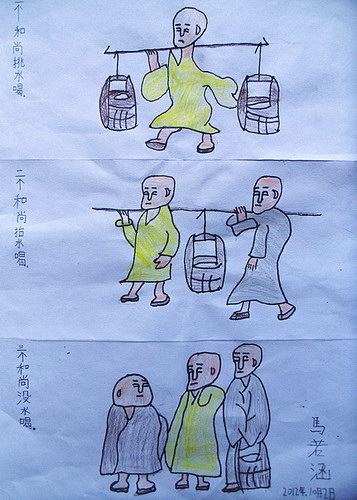 一个和尚挑水喝。
二个和尚抬水喝。
三个和尚没水喝。
馬若涵
2012年10月2日